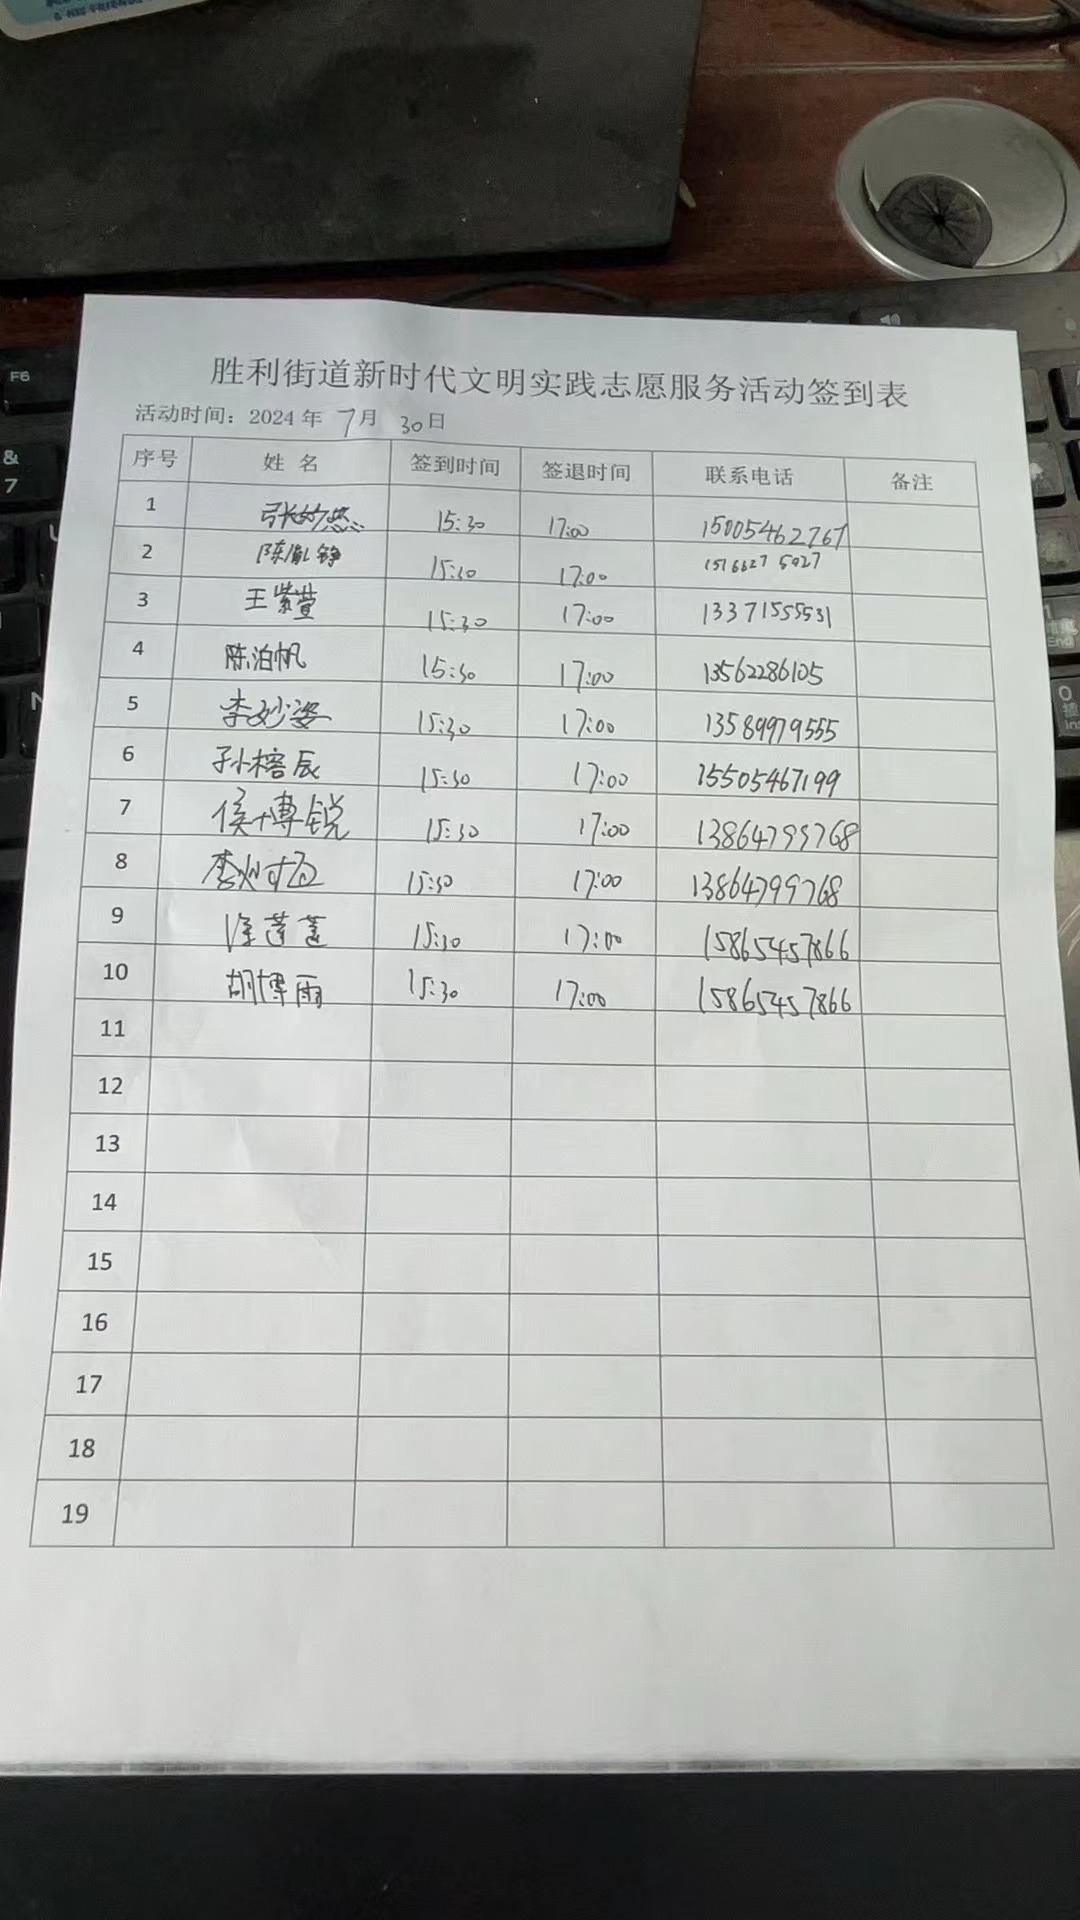 胜利街道新时代文明实践志愿服务活动签到表
活动时间：2024 年 7月 30日
序号 姓 名 签到时间 签退时间 联系电话 备注
1 张妙然 15:30 17:00 15005462767
2 陈胤铮 15:30 17:00 15166275027
3 王紫萱 15:30 17:00 13371555531
4 陈泊帆 15:30 17:00 13562286105
5 李妙姿 15:30 17:00 13589979555
6 孙榕辰 15:30 17:00 15505467199
7 侯博锐 15:30 17:00 13864799768
8 李 15:30 17:00 13864799768
9 15:30 17:00 15865457866
10 胡博雨 15:30 17:00 15865457866
11
12
13
14
15
16
17
18
19